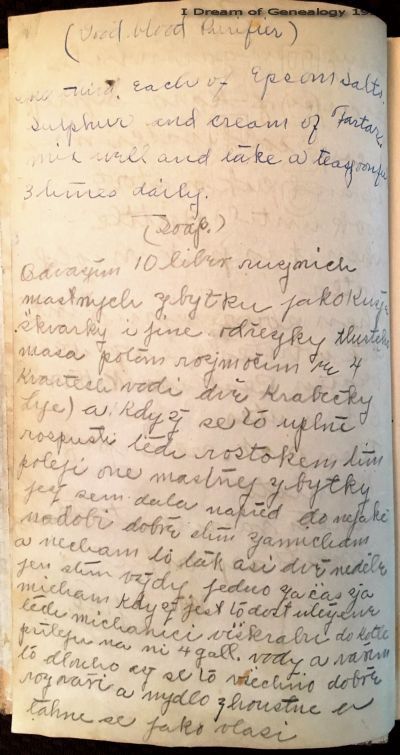 I Dream of Genealogy
(Good blood Purifier)
one third each of Epsom Salts.
Sulphur and cream of Tartar.
mix well and take a teaspoonful
3 times daily.
(Soap.)
Odvažim 10 liber ruznich
mastnych zbytku jako kuže
škvarky i jine odřezky tlusteho
masa potom rozmočim ve 4
kvartech vodi dvě krabičky
Lye) a když se to uplně
rozpusti teda roztokem tim
poleji one mastnej zbytky
jež sem dala napřed do nejaké
nadobi dobře stim zamicham
a necham to tak asi dvě neděle
jen stim vždy jedno za čas za
micham když jest to dost uležene
teda michanici viškrabu do kotle
přileju na ni 4 gall. vody a vařim
to dlouho až se to všechno dobře
rozvaři a mydlo zhoustne a
tahne se jako vlasi